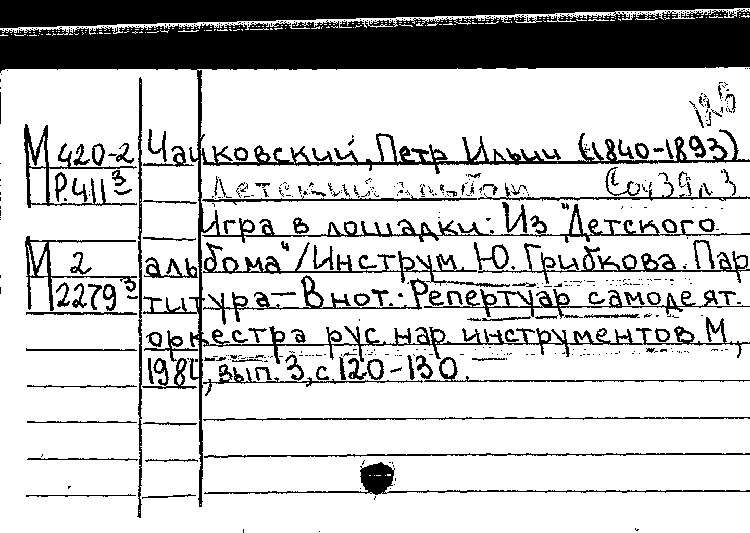 128
М 420-2 Чайковский, Петр Ильич (1840-1893)
Р.411³ Детский альбом Соч 39 л 3
Игра в лошадки: Из "Детского
М 2 альбома"/Инструм. Ю. Грибкова. Пар
2279³ титура.— В нот.: Репертуар самодеят.
оркестра рус. нар. инструментов. М.,
1984, вып. 3, с 120-130.